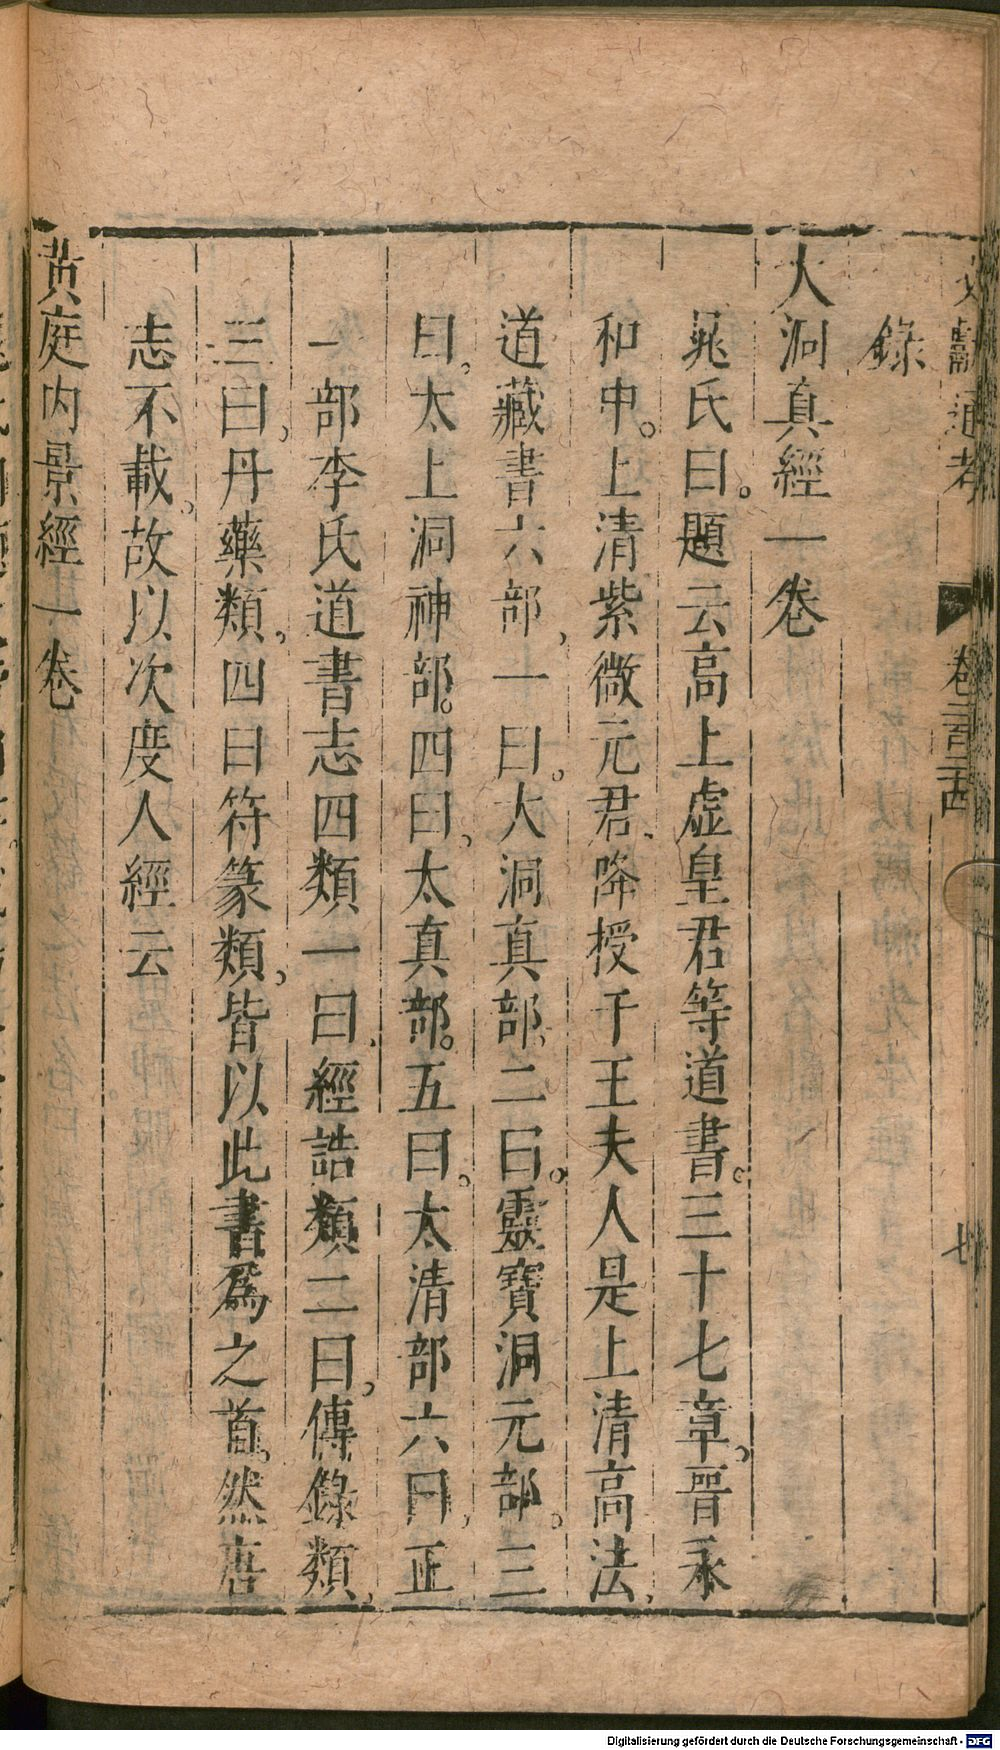 文獻通考 卷二百二十四 七
錄
大洞真經一卷
晁氏曰。題云高上虛皇君等道書。三十七章，晉永
和中。上清紫微元君、降授于王夫人是上清高法，
道藏書六部，一曰。大洞真部、二曰。靈寶洞元部。三
曰，太上洞神部。四曰，太真部。五曰。太清部六曰，正
一部李氏道書志四類一曰、經誥類二曰，傳錄類，
三曰，丹藥類，四曰符篆類，皆以此書爲之首。然唐
志不載。故以次度人經云
黃庭內景經一卷
Digitalisierung gefördert durch die Deutsche Forschungsgemeinschaft - DFG